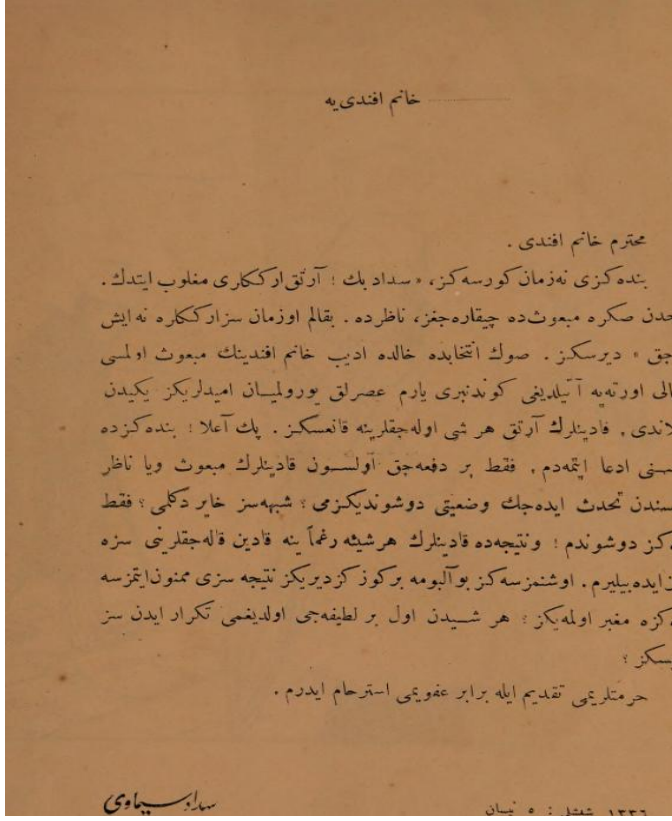 خانم افندی‌یه
محترم خانم افندی .
بنده‌كزی نه‌زمان كورسه‌كز، «سداد بك ! آرتق ارككلری مغلوب ایتدك.
حدن صكره مبعوث‌ده چیقاره‌جغز، ناظرده . بقالم اوزمان سز ارككلره نه ایش
جق » دیرسكز . صوك انتخابده خالده ادیب خانم افندینك مبعوث اولمسی
الی اورته‌یه آتیلدیغی كوندنبری یارم عصرلق یورولمیان امیدلریكز یكیدن
لاندی , قادینلرك آرتق هر شی اوله‌جقلرینه قانعسكز . پك آعلا ! بنده‌كزده
سنی ادعا ایتمه‌دم , فقط بر دفعه‌جق اولسون قادینلرك مبعوث ویا ناظر
سندن تحدث ایده‌جك وضعیتی دوشوندیكزمی ؟ شبهه‌سز خایر دكلمی ؟ فقط
كز دوشوندم ! ونتیجه‌ده قادینلرك هرشیئه رغماً ینه قادین قاله‌جقلرینی سزه
ن ایده بیلیرم . اوشنمزسه‌كز بو آلبومه بر كوز كزدیریكز نتیجه سزی ممنون ایتمزسه
كزه مغبر اولمه‌یكز ؛ هر شیدن اول بر لطیفه‌جی اولدیغمی تكرار ایدن سز
یسكز ؟
حرمتلریمی تقدیم ایله برابر عفویمی استرحام ایدرم .
سداد سیماوی
١٣٣٦ شیشلی : ٥ نیسان